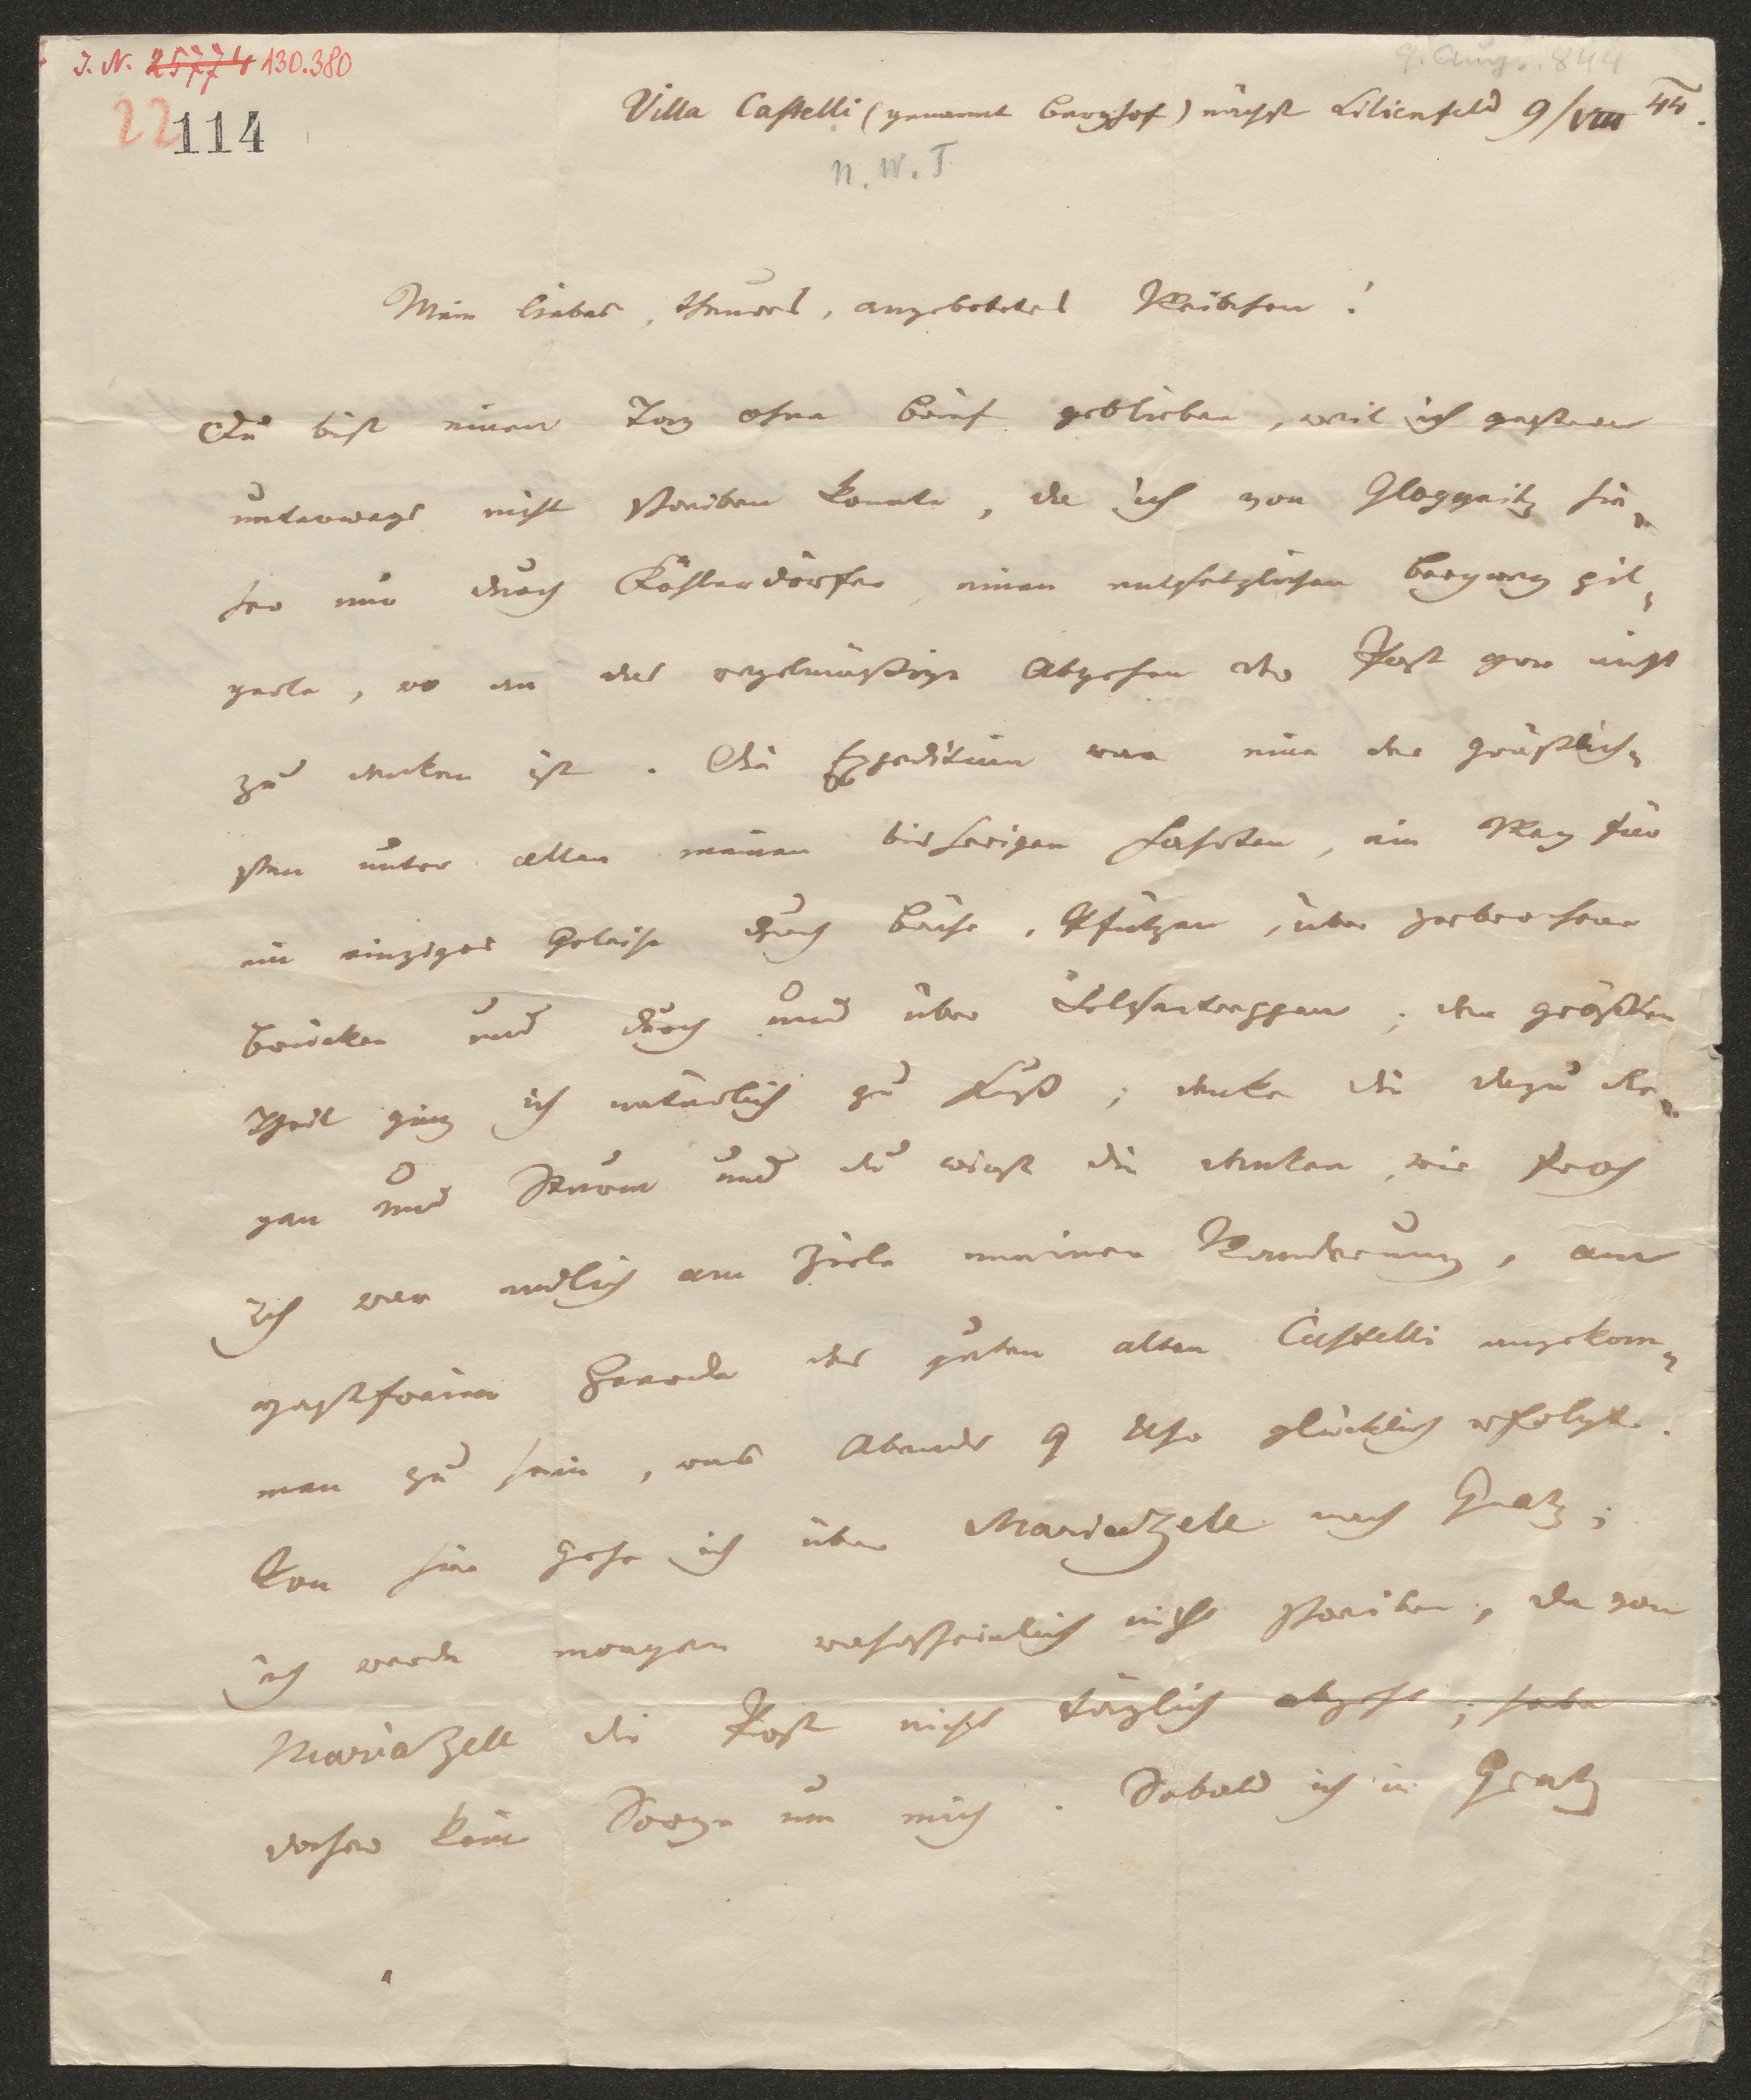 J. N. 25774 130.380
9. Aug. 844
22 114
Villa Castelli (genannt Berghof) nächst Lilienfeld 9/VIII 44.
N. W. T
Mein liebes, theures, angebetetes Weibchen!
Du bist einen Tag ohne Brief geblieben, weil ich gestern
unterwegs nicht schreiben konnte, da ich von Gloggnitz hie-
her nur durch Köhlerdörfer, einen entsetzlichen Bergweg pil-
gerte, wo an das regelmäßige Abgehen der Post gar nicht
zu denken ist. Die Expedition war eine der gräßlich-
sten unter allen meinen bisherigen Fahrten, ein Weg für
ein einziges Geleise durch Bäche, Pfützen, über zerbrochene
Brücken und durch und über Felsentreppen; den größten
Theil ging ich natürlich zu Fuß; denke dir dazu Re-
gen und Sturm und du wirst dir denken, wie froh
ich war endlich am Ziele meiner Wanderung, am
gastfreien Heerde des guten alten Castelli angekom-
men zu sein, was Abends 9 Uhr glücklich erfolgte.
Von hier gehe ich über Mariazell nach Gratz;
ich werde morgen wahrscheinlich nicht schreiben, da von
Mariazell die Post nicht täglich abgeht; habe
daher keine Sorge um mich. Sobald ich in Gratz